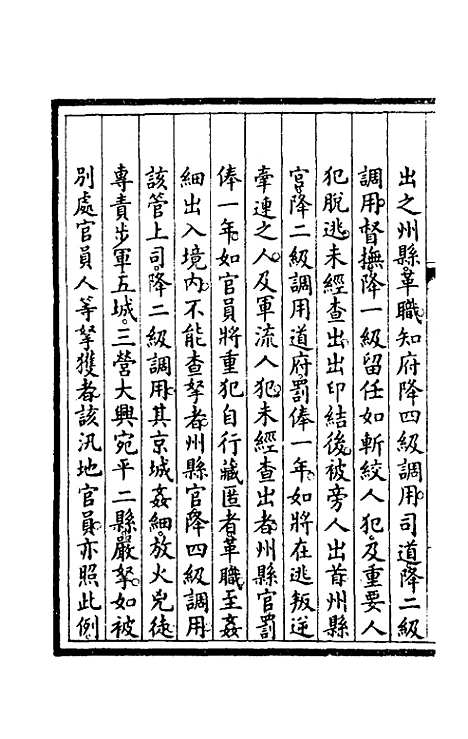 出之州縣革職知府降四級調用司道降二級
調用督撫降一級留任如斬絞人犯及重要人
犯脫逃未經查出出印結後被旁人出首州縣
官降二級調用道府罰俸一年如將在逃叛逆
牽連之人及軍流人犯未經查出者州縣官罰
俸一年如官員將重犯自行藏匿者革職至姦
細出入境內不能查拏者州縣官降四級調用
該管上司降二級調用其京城姦細放火兇徒
專責步軍五城三營大興宛平二縣嚴拏如被
別處官員人等拏獲者該汛地官員亦照此例